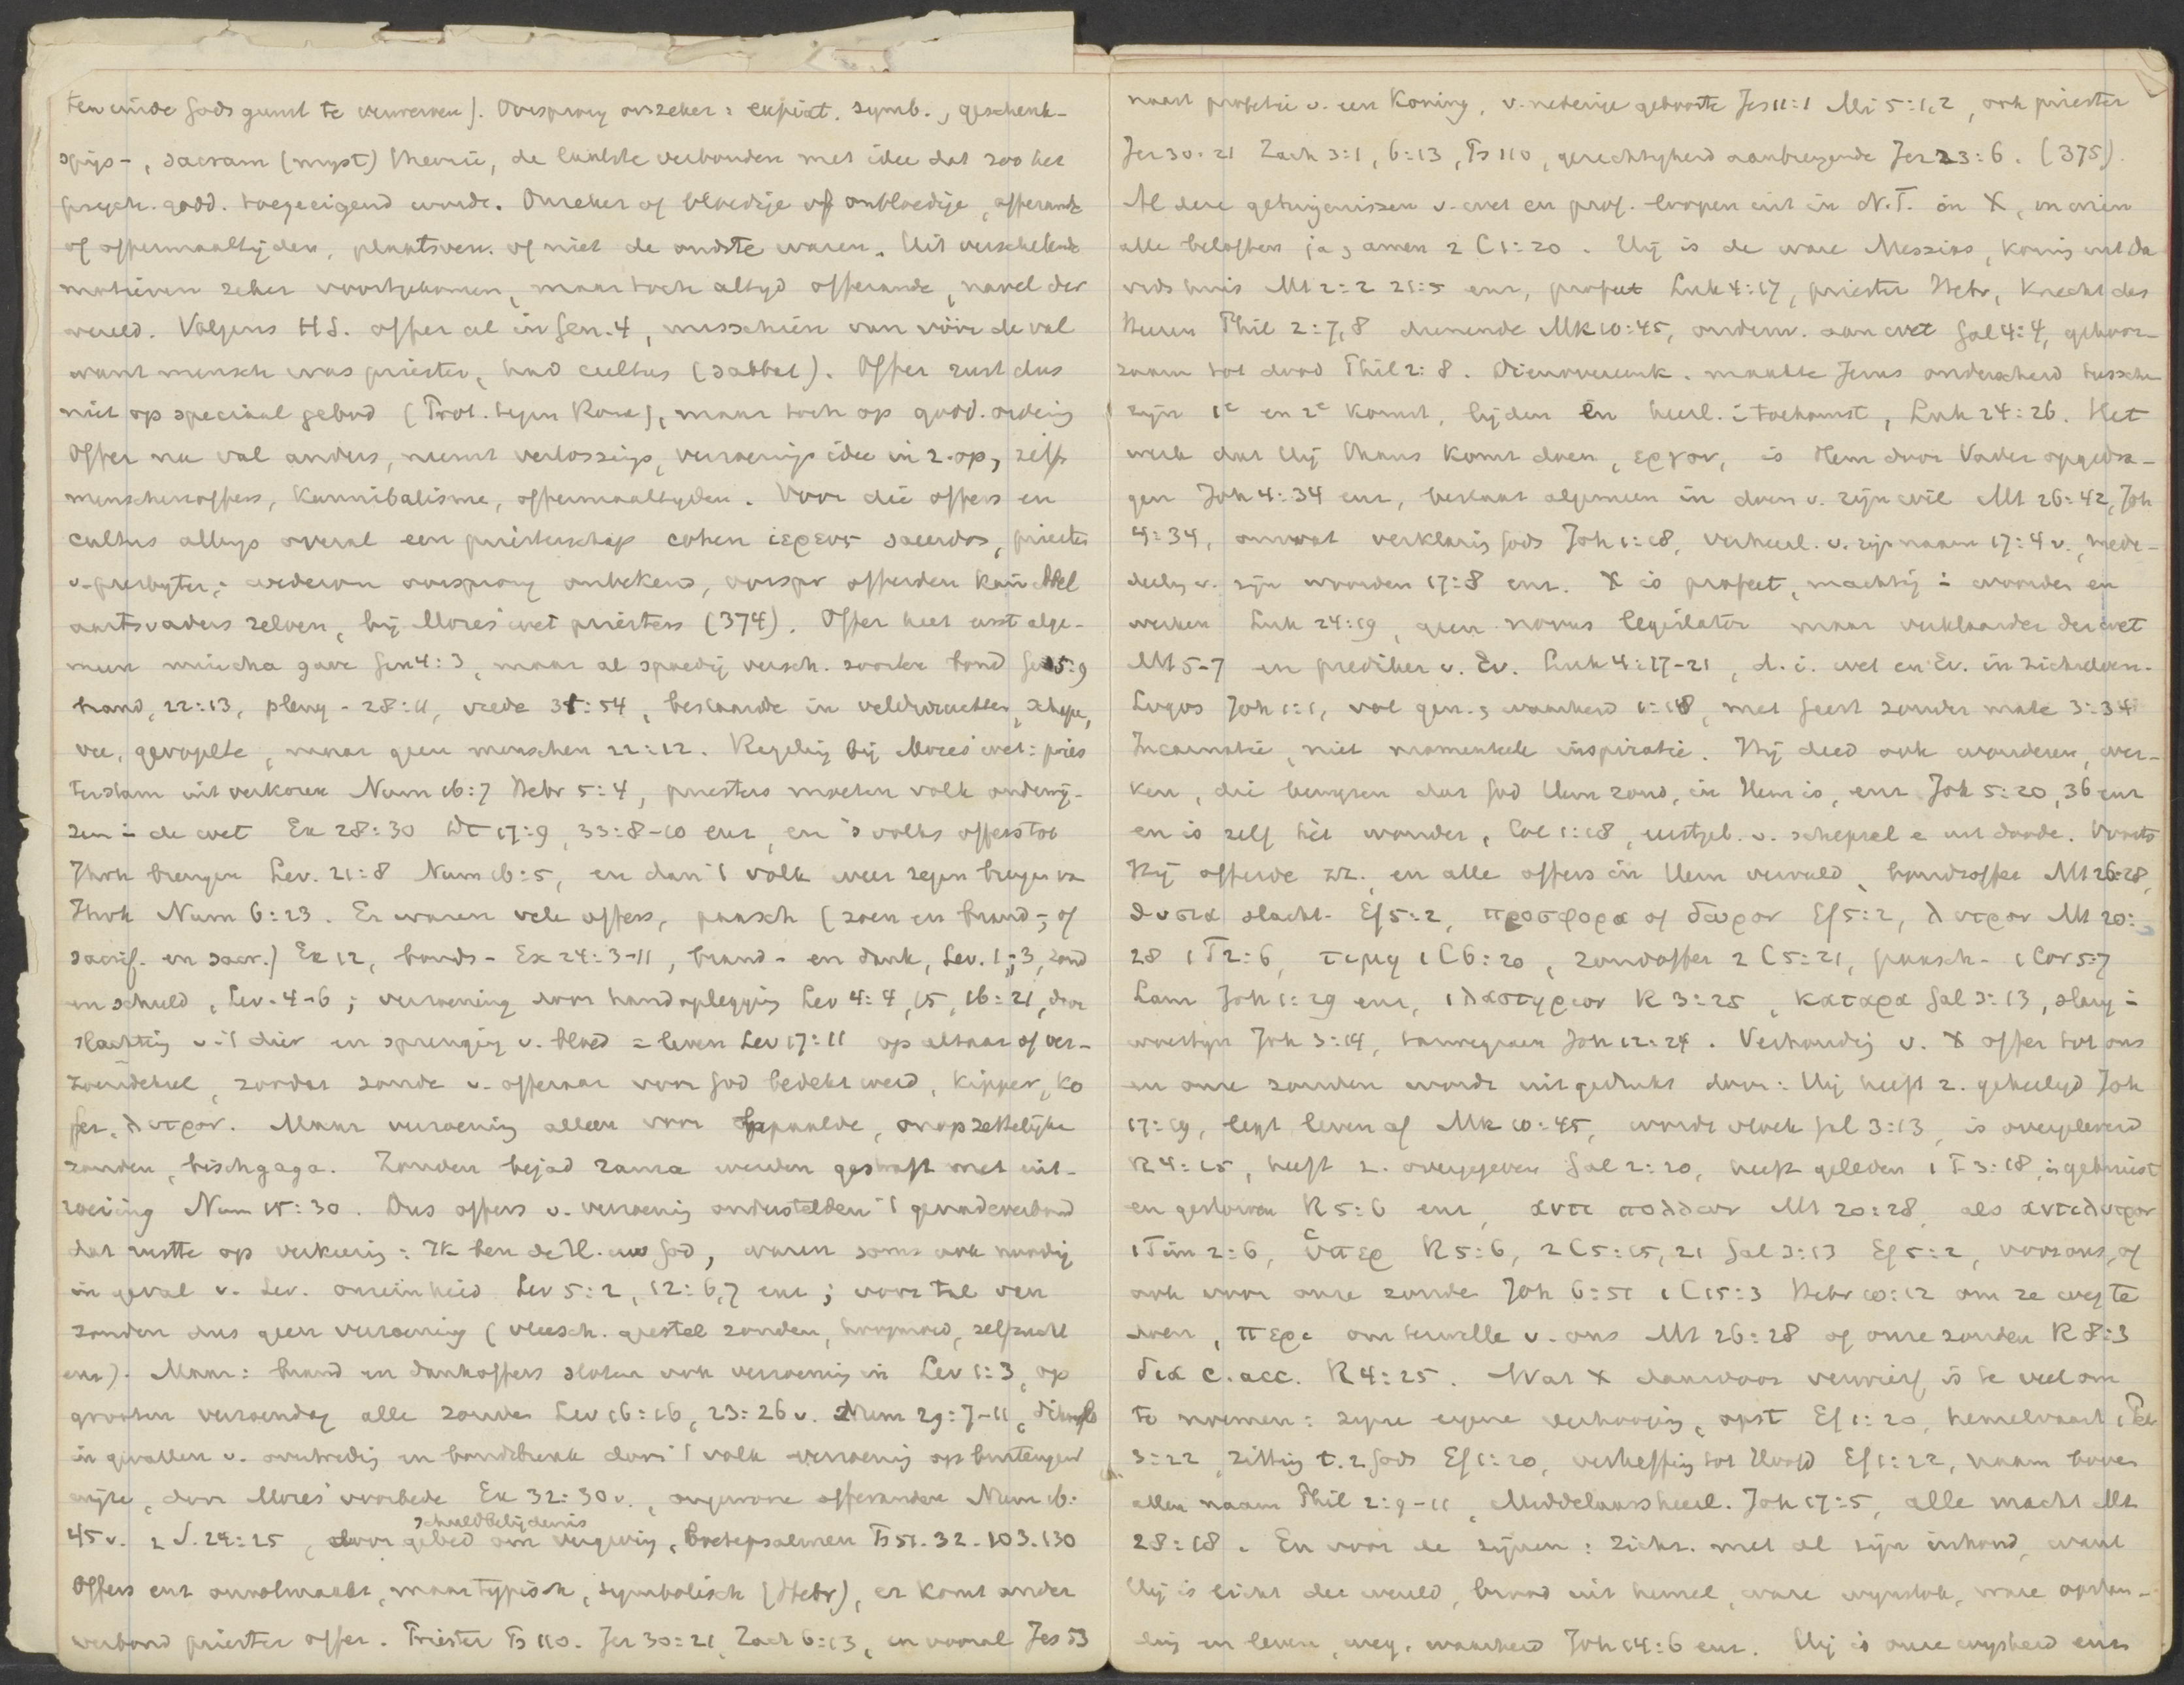 ten einde Gods gunst te verwerven). Oorsprong onzeker: expiat. symb., geschenk-
spijs-, sacram (myst) theorie, de laatste verbonden met idee dat zoo het
psych. godd. toegeeigend wordt. Onzeker of bloedige of onbloedige, offerande
of offermaaltijden, plaatsverv. of niet de oudste waren. Uit verschillende
motieven zeker voortgekomen, maar toch altijd offerande, navel der
wereld. Volgens HS. offer al in Gen. 4, misschien van vóór de val
want mensch was priester, had cultus (sabbat). Offer rust dus
niet op speciaal gebod (Prot. tegen Rome), maar toch op godd. ordening
Offer na val anders, neemt verlossings, verzoenings idee in z. op, zelfs
menschenoffers, kannibalisme, offermaaltijden. Voor die offers en
cultus allengs overal een priesterschap cohen ιερευς sacerdos, priester
v. presbyter; wederom oorsprong onbekend, oorspr offerden Kaïn Abel
aartsvaders zelven, bij Mozes' wet priesters (374). Offer heet eerst alge-
meen mincha gave Gen 4:3, maar al spoedig versch. soorten bond Gen 15:9
brand, 22:13, pleng- 28:11, vrede 31:54, bestaande in veldvruchten, schape,
vee, gevogelte, maar geen menschen 22:12. Regeling bij Mozes' wet: pries
terstam uitverkoren Num 16:7 Hebr 5:4, priesters moeten volk onderwij-
zen i de wet Ex 28:30 Dt 17:9, 33:8-10 enz, en 's volks offers tot
Jhvh brengen Lev. 21:8 Num 16:5, en dan 't volk weer zegen brengen van
Jhvh Num 6:23. Er waren vele offers, paasch (zoen en brand-, of
sacrif. en sacr.) Ex 12, bonds- Ex 24:3-11, brand- en dank, Lev. 1, 3, zond
en schuld, Lev. 4-6; verzoening door handoplegging Lev 4:4, 15, 16:21, door
slachting v. 't dier en sprenging v. bloed = leven Lev 17:11 op altaar of ver-
zoendeksel, zoodat zonde v. offeraar voor God bedekt werd, kipper, ko
fer, λυτρον. Maar verzoening alleen voor bepaalde, onopzettelijke
zonden, bischgaga. Zonden bejad rama werden gestraft met uit-
roeiing Num 15:30. Dus offers v. verzoening onderstelden 't genadeverbond
dat rustte op verkiezing: Ik ben de H. uw God, waren soms ook noodig
in geval v. Lev. onreinheid Lev 5:2, 12:6,7 enz; voor tal van
zonden dus geen verzoening (vleesch. geestel zonden, hoogmoed, zelfzucht
enz). Maar: brand en dankoffers sloten ook verzoening in Lev 1:3, op
grooten verzoendag alle zonden Lev 16:16, 23:26 v. Num 29:7-11,
in gevallen v. overtreding en bondsbreuk door 't volk verzoening op buitengewone
wijze, door Mozes' voorbede Ex 32:30 v., ongewone offeranden Num 16:
45 v. 2 S. 24:25, door gebed schuldbelijdenis om vergeving, boetepsalmen Ps 51. 32. 103. 130
Offers enz onvolmaakt, maar typisch, symbolisch (Hebr), er komt ander
verbond priester offer. Priester Ps 110. Jer 30:21, Zach 6:13, en vooral Jes 53
naast profetie v. een Koning, v. nederige geboorte Jes 11:1 Mi 5:1,2, ook priester
Jer 30:21 Zach 3:1, 6:13, Ps 110, gerechtigheid aanbrengende Jer 23:6. (375).
Al deze getuigenissen v. wet en prof. loopen uit in N.T. in X, in wien
alle beloften ja, amen 2 C 1:20. Hij is de ware Messias, koning uit Da
vids huis Mt 2:2 21:5 enz, profeet Luk 4:17, priester Hebr, Knecht des
Heeren Phil 2:7,8 dienende Mk 10:45, onderw. aan wet Gal 4:4, gehoor-
zaam tot dood Phil 2:8. Dienovereenk. maakte Jezus onderscheid tusschen
zijn 1e en 2e komst, lijden én heerl. i toekomst, Luk 24:26. Het
werk dat Hij thans komt doen, εργον, is Hem door Vader opgedra-
gen Joh 4:34 enz, bestaat algemeen in doen v. zijn wil Mt 26:42, Joh
4:34, omvat verklaring Gods Joh 1:18, verheerl. v. zijn naam 17:4 v., mede-
deeling v. zijn woorden 17:8 enz. X is profeet, machtig i woorden en
werken Luk 24:19, geen novus legislator maar verklaarder der wet
Mt 5-7 en prediker v. Ev. Luk 4:17-21, d.i. wet en Ev. in zichzelven.
Logos Joh 1:1, vol gen. , waarheid 1:18, met Geest zonder mate 3:34
Incarnatie, niet momenteele inspiratie. Hij deed ook wonderen, wer-
ken, die bewijzen dat God Hem zond, in Hem is, enz Joh 5:20, 36 enz
en is zelf hét wonder, Col 1:18, eerstgeb. v. schepsel e uit doode. Voorts
Hij offerde zz. en alle offers in Hem vervuld, bondsoffer Mt 26:28,
θυσια slacht- Ef 5:2, προσφορα of δωρον Ef 5:2, λυτρον Mt 20:
28 1 T 2:6, τιμη 1 C 6:20, zondoffer 2 C 5:21, paasch- 1 Cor 5:7
Lam Joh 1:29 enz, ιλαστηριον R 3:25, καταρα Gal 3:13, slang i
woestijn Joh 3:14, tarwegraan Joh 12:24. Verhouding v. X offer tot ons
en onze zonden wordt uitgedrukt door: Hij heeft z. geheiligd Joh
17:19, legt leven af Mk 10:45, wordt vloek Gal 3:13, is overgeleverd
R 4:25, heeft z. overgegeven Gal 2:20, heeft geleden 1 P 3:18, is gekruist
en gestorven R 5:6 enz, αντι πολλων Mt 20:28, als αντιλυτρον
1 Tim 2:6, ὑπερ R 5:6, 2 C 5:15, 21 Gal 3:13 Ef 5:2, voor ons, of
ook voor onze zonde Joh 6:51 1 C 15:3 Hebr 10:12 om ze weg te
doen, περι om terwille v. ons Mt 26:28 of onze zonden R 8:3
δια c. acc. R 4:25. Wat X daarvoor verwierf is te veel om
te noemen: zijne eigene verhooging, opst Ef 1:20, hemelvaart 1 Petr
3:22, zitting t. 2 Gods Ef 1:20, verheffing tot Hoofd Ef 1:22, naam boven
allen naam Phil 2:9-11, Middelaarsheerl. Joh 17:5, alle macht Mt
28:18. En voor de zijnen: zichz. met al zijn inhoud, want
Hij is licht der wereld, brood uit hemel, ware wijnstok, ware opstan-
ding en leven, weg, waarheid Joh 14:6 enz. Hij is onze wijsheid enz